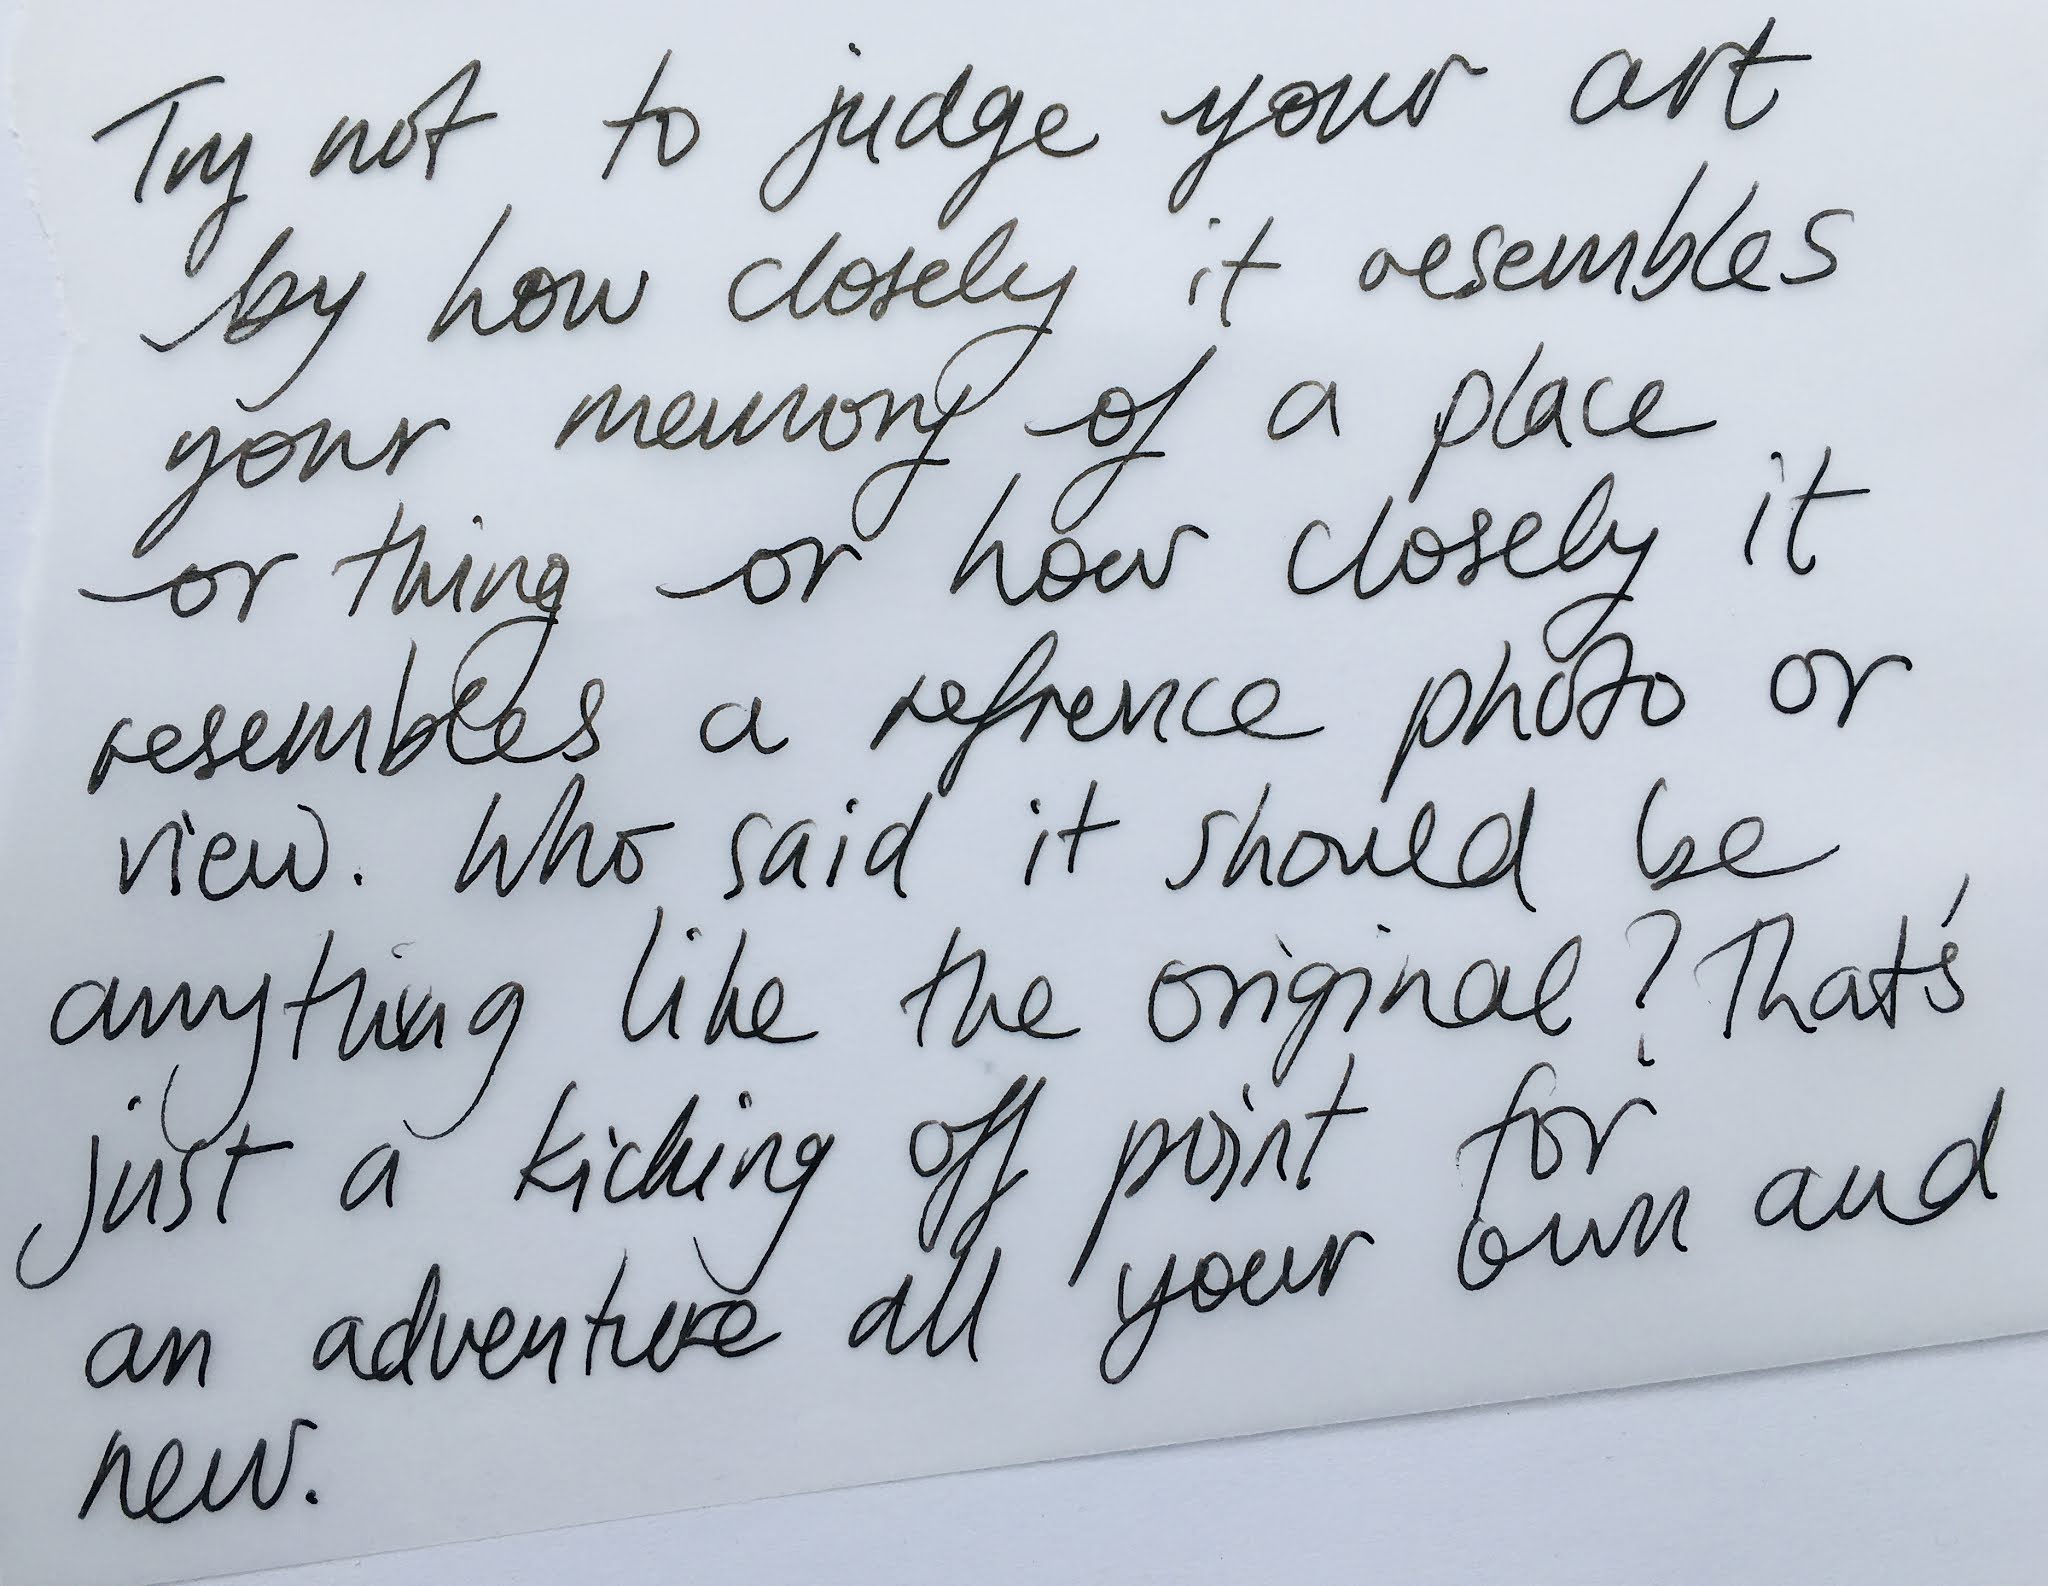 Try not to judge your art
by how closely it resembles
your memory of a place
or thing or how closely it
resembles a refrence photo or
view. Who said it should be
anything like the original? That's
just a kicking off point for
an adventure all your own and
new.